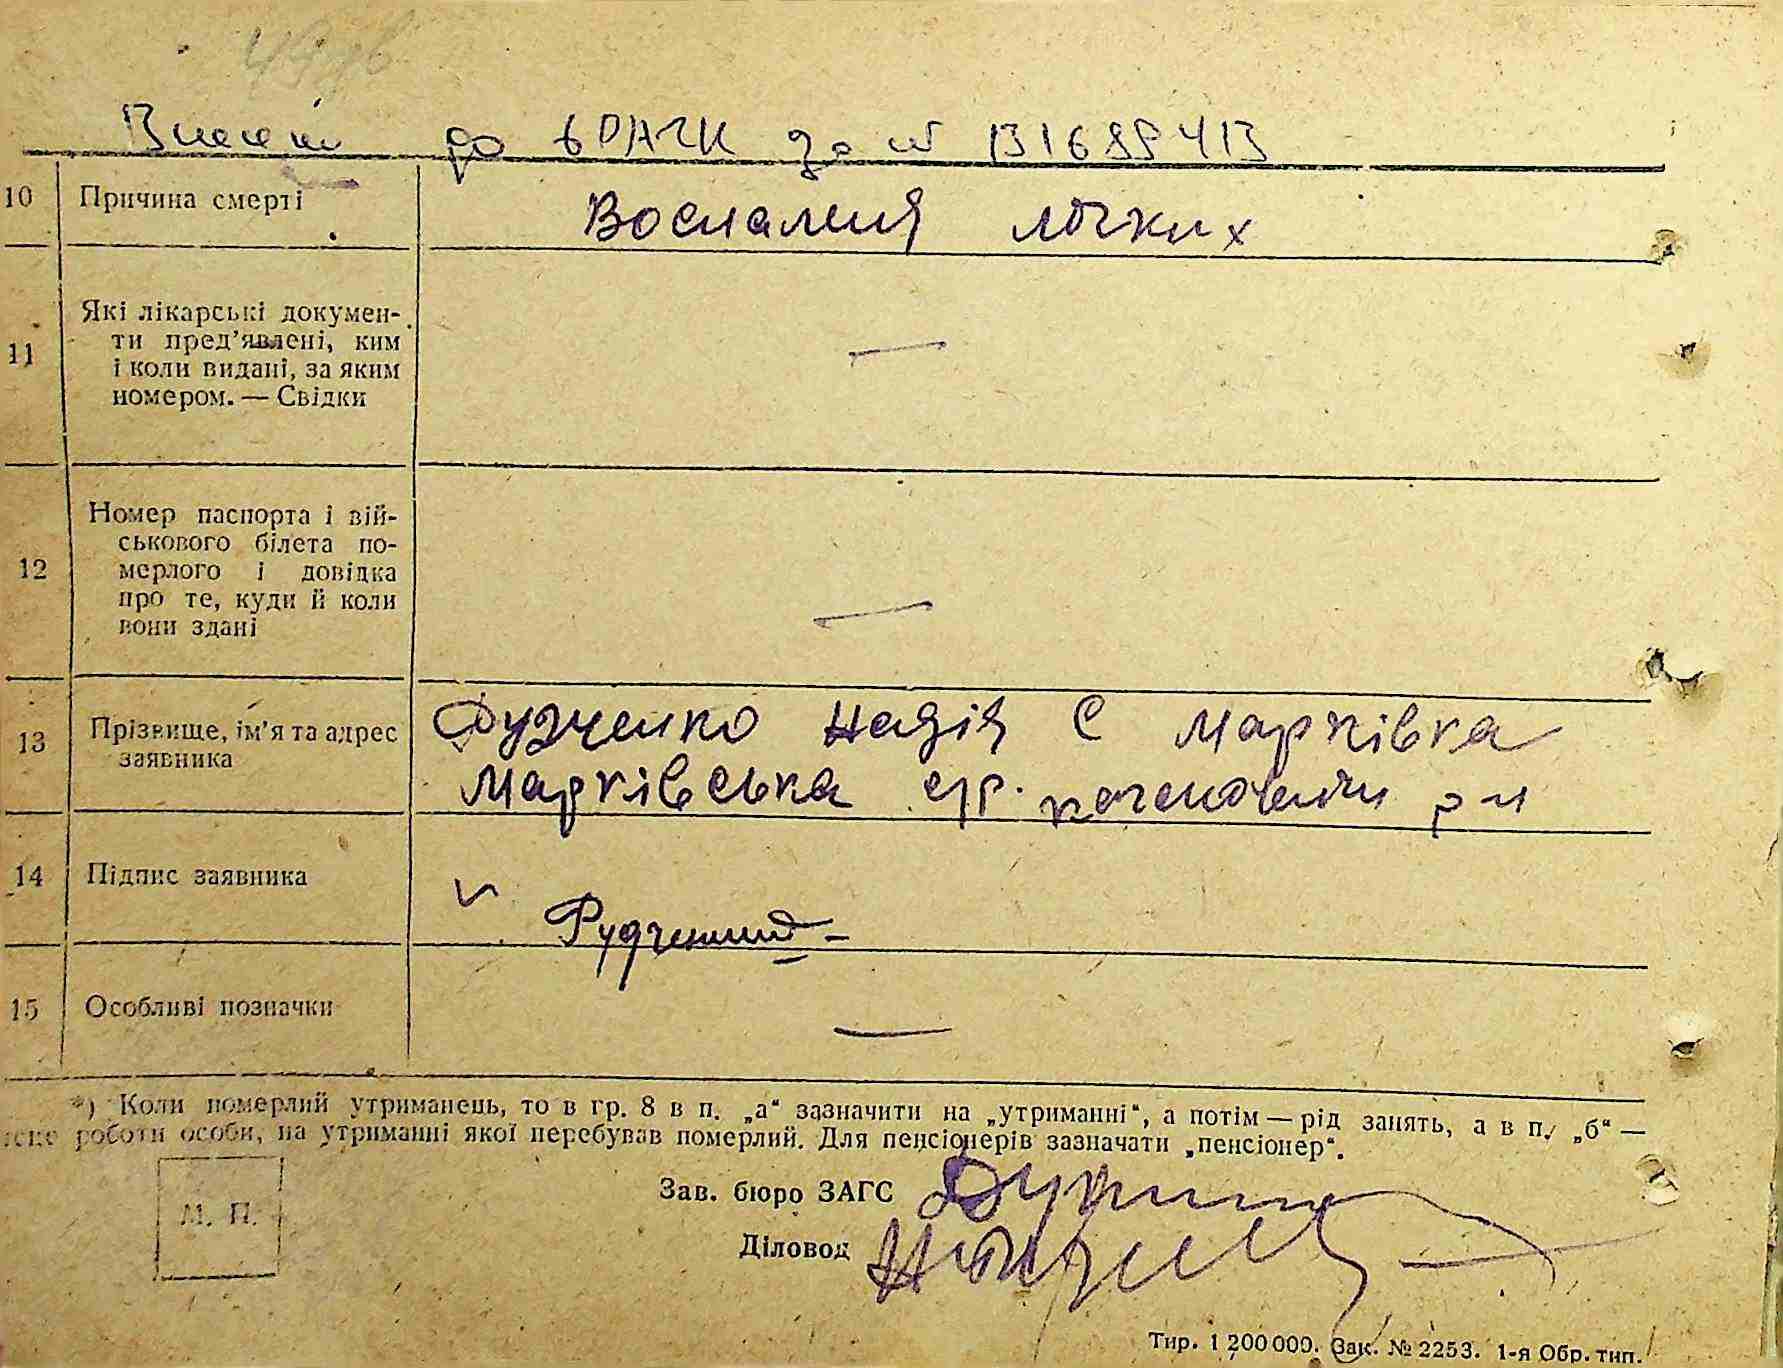 до
10 Причина смерті Воспаления лёгких
11 Які лікарські докумен-
ти пред’явлені, ким
і коли видані, за яким
номером. — Свідки —
12 Номер паспорта і вій-
ськового білета по-
мерлого і довідка
про те, куди й коли
вони здані —
13 Прізвище, ім’я та адрес
заявника
Рудченко Надія С Марківка
Марківська с/р. р-н
14 Підпис заявника Рудченко
15 Особливі позначки —
*) Коли померлий утриманець, то в гр. 8 в п. „а“ зазначити на „утриманні“, а потім — рід занять, а в п. „б“ —
роботи особи, на утриманні якої перебував померлий. Для пенсіонерів зазначати „пенсіонер“.
М. П.
Зав. бюро ЗАГС
Діловод
Тир. 1 200 000. Зак. № 2253. 1-я Обр. тип.